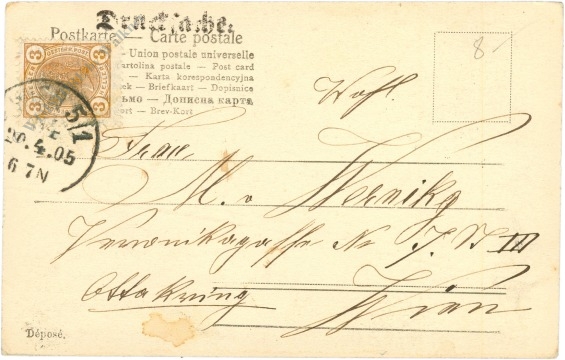 Drucksache.
Postkarte — Carte postale
Union postale universelle
artolina postale — Post card
— Karta korespondencyjna
ek — Briefkaart — Dopisnice
ьмо — Дописна карта
ort — Brev-Kort
8
3 3
3 3
5/1
20.4.05
6 7N
Wohl.
Frau
M. v Wernikg
Veronikagasse No 7. III
Ottakring Wien
Déposé.